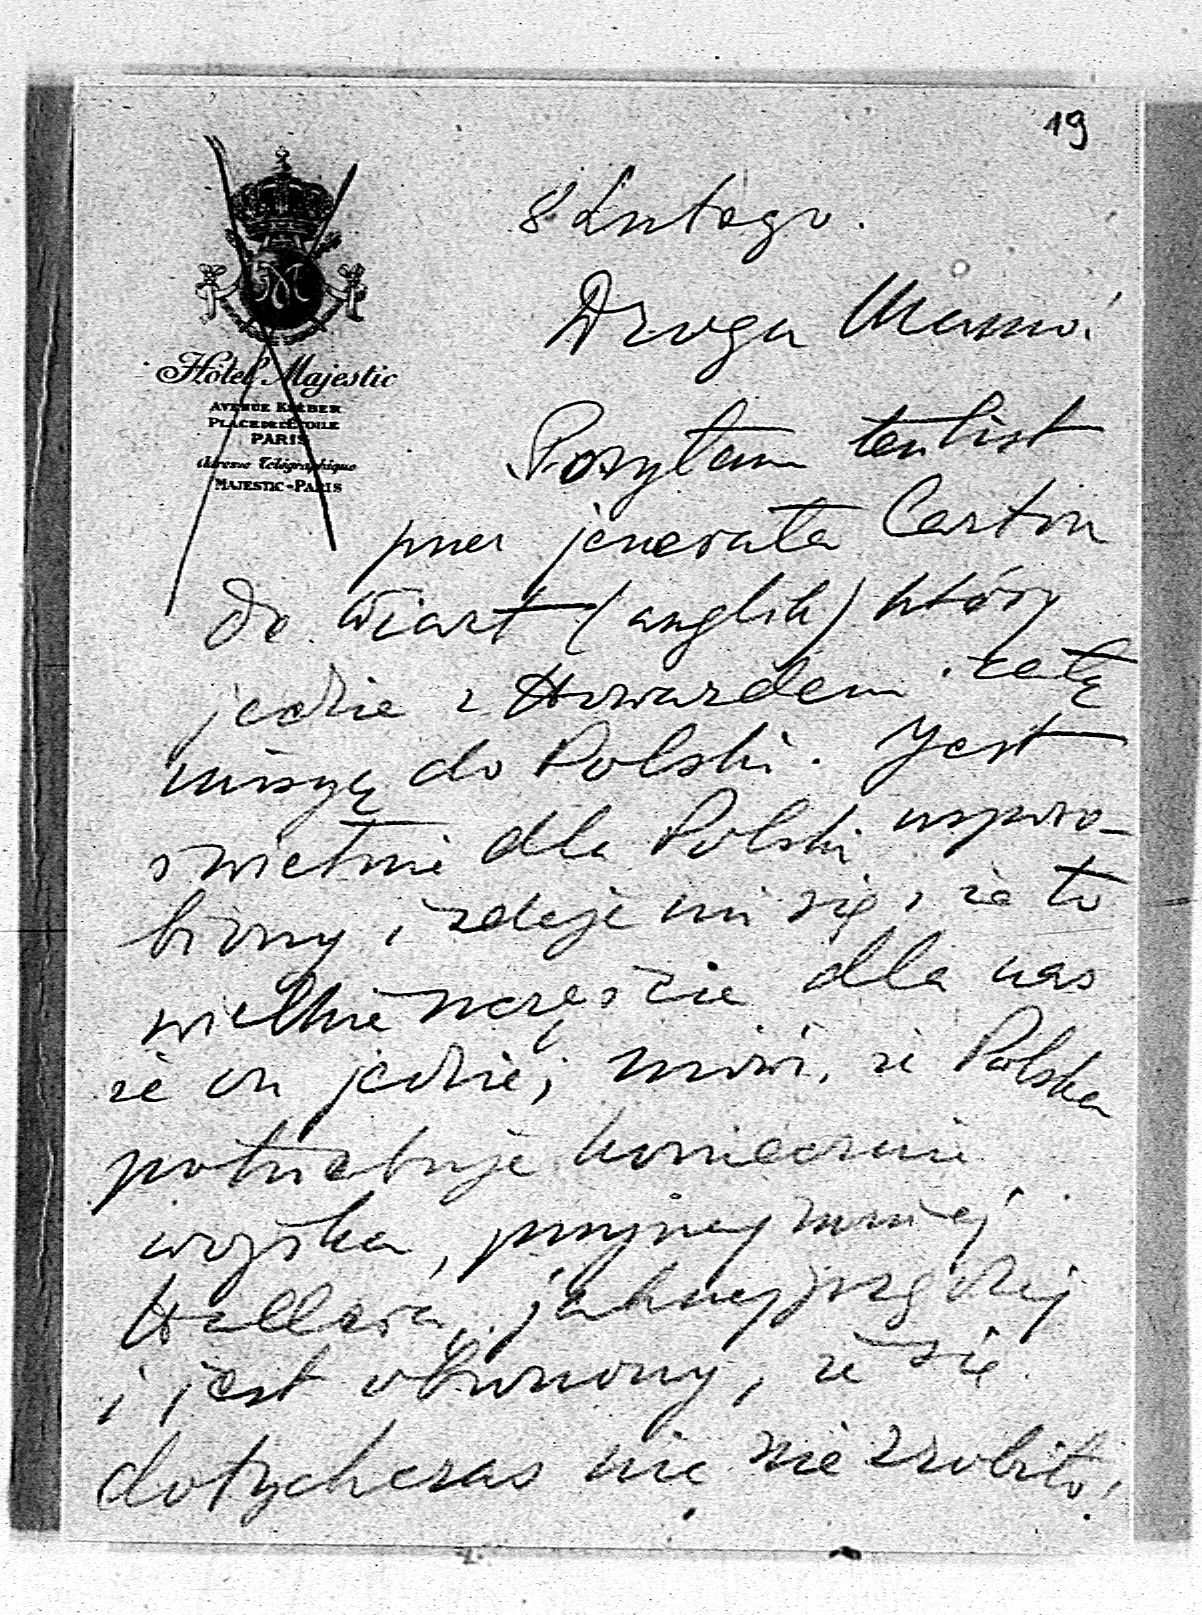 19
8 Lutego.
Hôtel Majestic
AVENUE KLÉBER
PLACE DE L'ÉTOILE
PARIS
Adresse Télégraphique
MAJESTIC-PARIS
Droga Mamo!
Posyłam ten list
przez jenerała Carton
de Wiart (anglik) który
jedzie z Howardem i całą
misyą do Polski. Jest
świetnie dla Polski usposo-
biony, i zdaje mi się, że to
wielkie szczęście dla nas
że on jedzie; mówi, że Polska
potrzebuje koniecznie
wojska, przynajmniej
Hallera, jaknajprędzej
i jest oburzony, że się
dotychczas nic nie zrobiło!